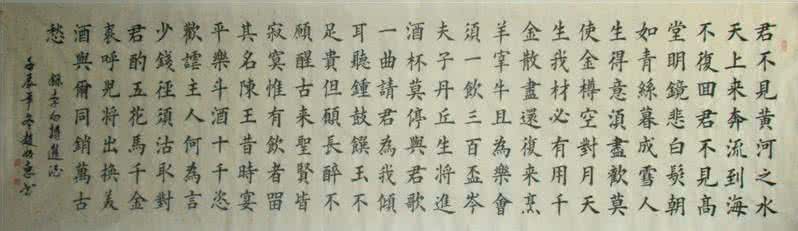 君不見黃河之水
天上来奔流到海
不復回君不見高
堂明鏡悲白髮朝
如青絲暮成雪人
生得意湏盡歡莫
使金樽空對月天
生我材必有用千
金散盡還復来烹
羊宰牛且為樂會
湏一飲三百盃岑
夫子丹丘生将進
酒杯莫停與君歌
一曲請君為我傾
耳聽鍾鼓饌玉不
足貴但願長醉不
願醒古来聖賢皆
寂寞惟有飲者留
其名陳王昔時宴
平樂斗酒十千恣
歡謔主人何為言
少錢徑湏沽取對
君酌五花馬千金
裘呼兒将出換美
酒與爾同銷萬古
愁
錄李白將進酒
壬辰年冬趙